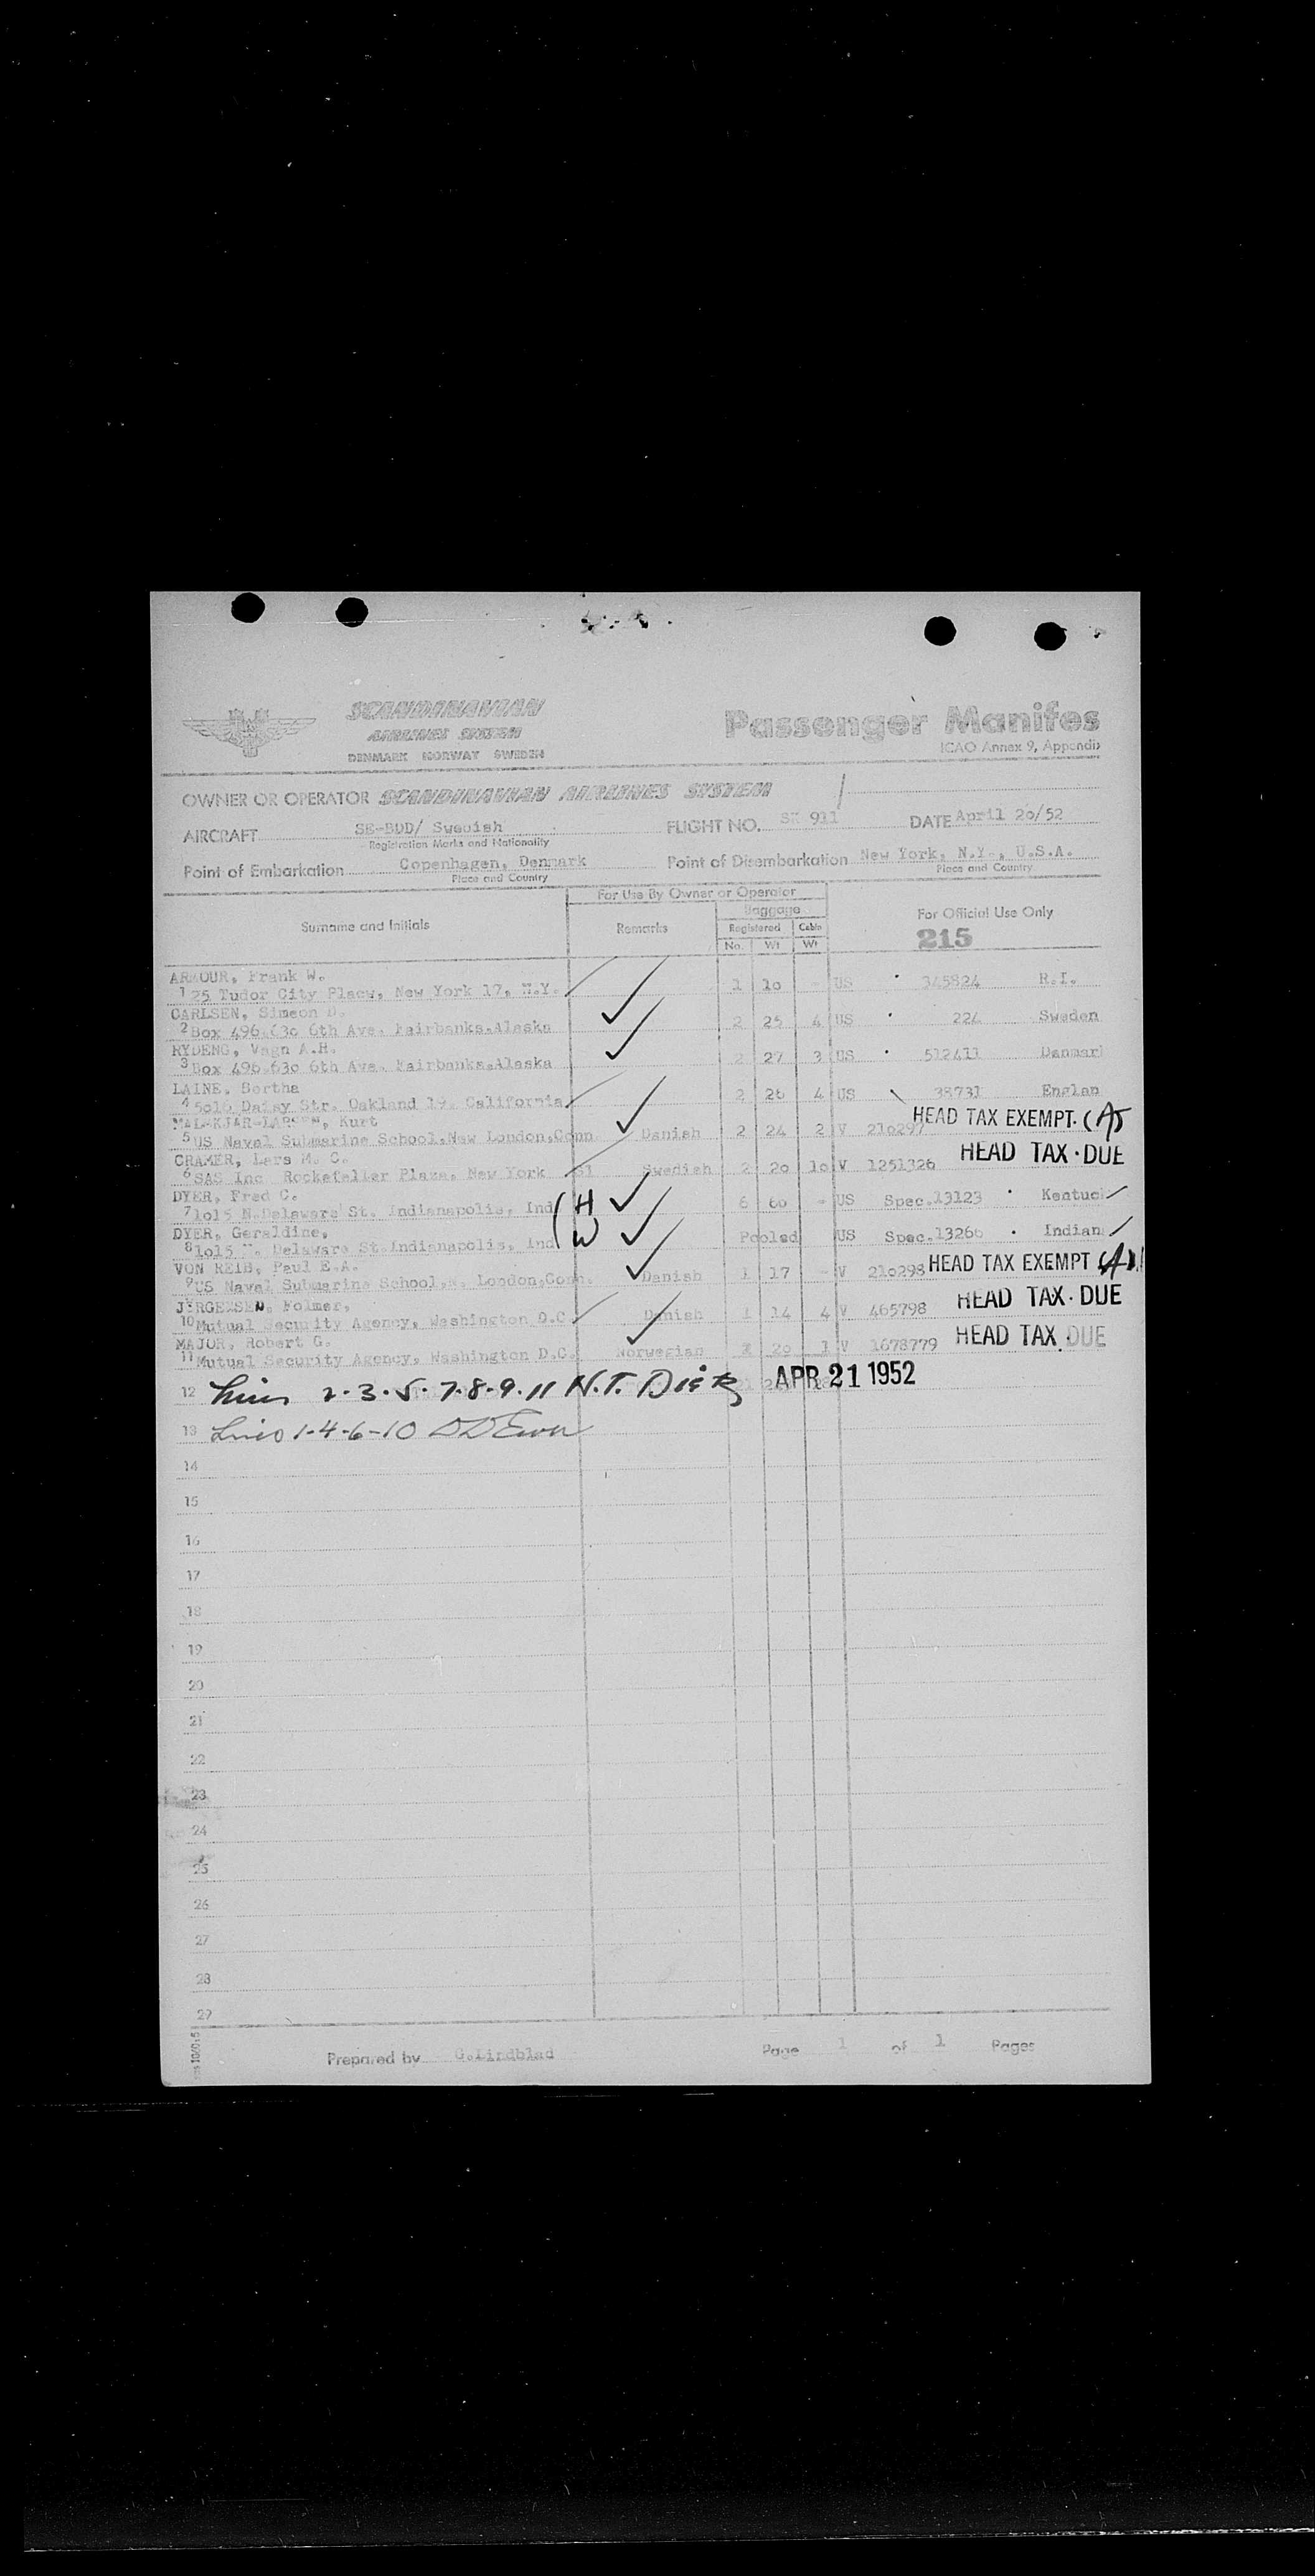 SCANDINAVIAN
AIRLINES SYSTEM
DENMARK NORWAY SWEDEN
Passenger Manifes
ICAO Annex 9, Appendix
OWNER OR OPERATOR SCANDINAVIAN AIRLINES SYSTEM
AIRCRAFT SE-BDD/ Swedish FLIGHT NO. SK 911 DATE April 20/52
Registration Marks and Nationality
Point of Embarkation Copenhagen, Denmark Point of Disembarkation New York, N.Y., U.S.A.
Place and Country Place and Country
For Use By Owner or Operator
Surname and Initials Remarks Baggage For Official Use Only
Registered Cabin
No. Wt Wt
215
ARMOUR, Frank W.
1 25 Tudor City Placw, New York 17, N.Y. 1 10 - US 345824 R.I.
CARLSEN, Simeon D.
2 Box 496.630 6th Ave. Fairbanks.Alaska 2 25 4 US 224 Sweden
RYDENG, Vagn A.H.
3 Box 496.630 6th Ave. Fairbanks.Alaska 2 27 3 US 512411 Danmar
LAINE, Bertha
4 5016 Daisy Str. Oakland 19. California 2 26 4 US 38731 Englan
Kurt HEAD TAX EXEMPT. (A)
5 US Naval Submarine School.New London,Conn Danish 2 24 2 V 210297
CRAMER, Lars M. C. HEAD TAX DUE
6 SAS Inc Rockefeller Plaza, New York 51 Swedish 2 20 10 V 1251326
DYER, Fred C.
7 1015 N.Delaware St. Indianapolis, Ind (H 6 60 - US Spec.13123 Kentuc
DYER, Geraldine,
8 1015 N. Delaware St.Indianapolis, Ind W Pooled US Spec.13266 Indian
VON REIB, Paul E.A. HEAD TAX EXEMPT (A)
9 US Naval Submarine School,N. London,Conn. Danish 1 17 - V 210298
JØRGENSEN, Folmer, HEAD TAX DUE
10 Mutual Security Agency, Washington D.C. Danish 1 14 4 V 465798
MAJOR, Robert G. HEAD TAX DUE
11 Mutual Security Agency, Washington D.C. Norwegian 1 20 1 V 1678779
12 Lines 2-3-5-7-8-9-11 N.T. Dietz APR 21 1952
13 Lines 1-4-6-10
14
15
16
17
18
19
20
21
22
23
24
25
26
27
28
29
Prepared by G.Lindblad Page 1 of 1 Pages